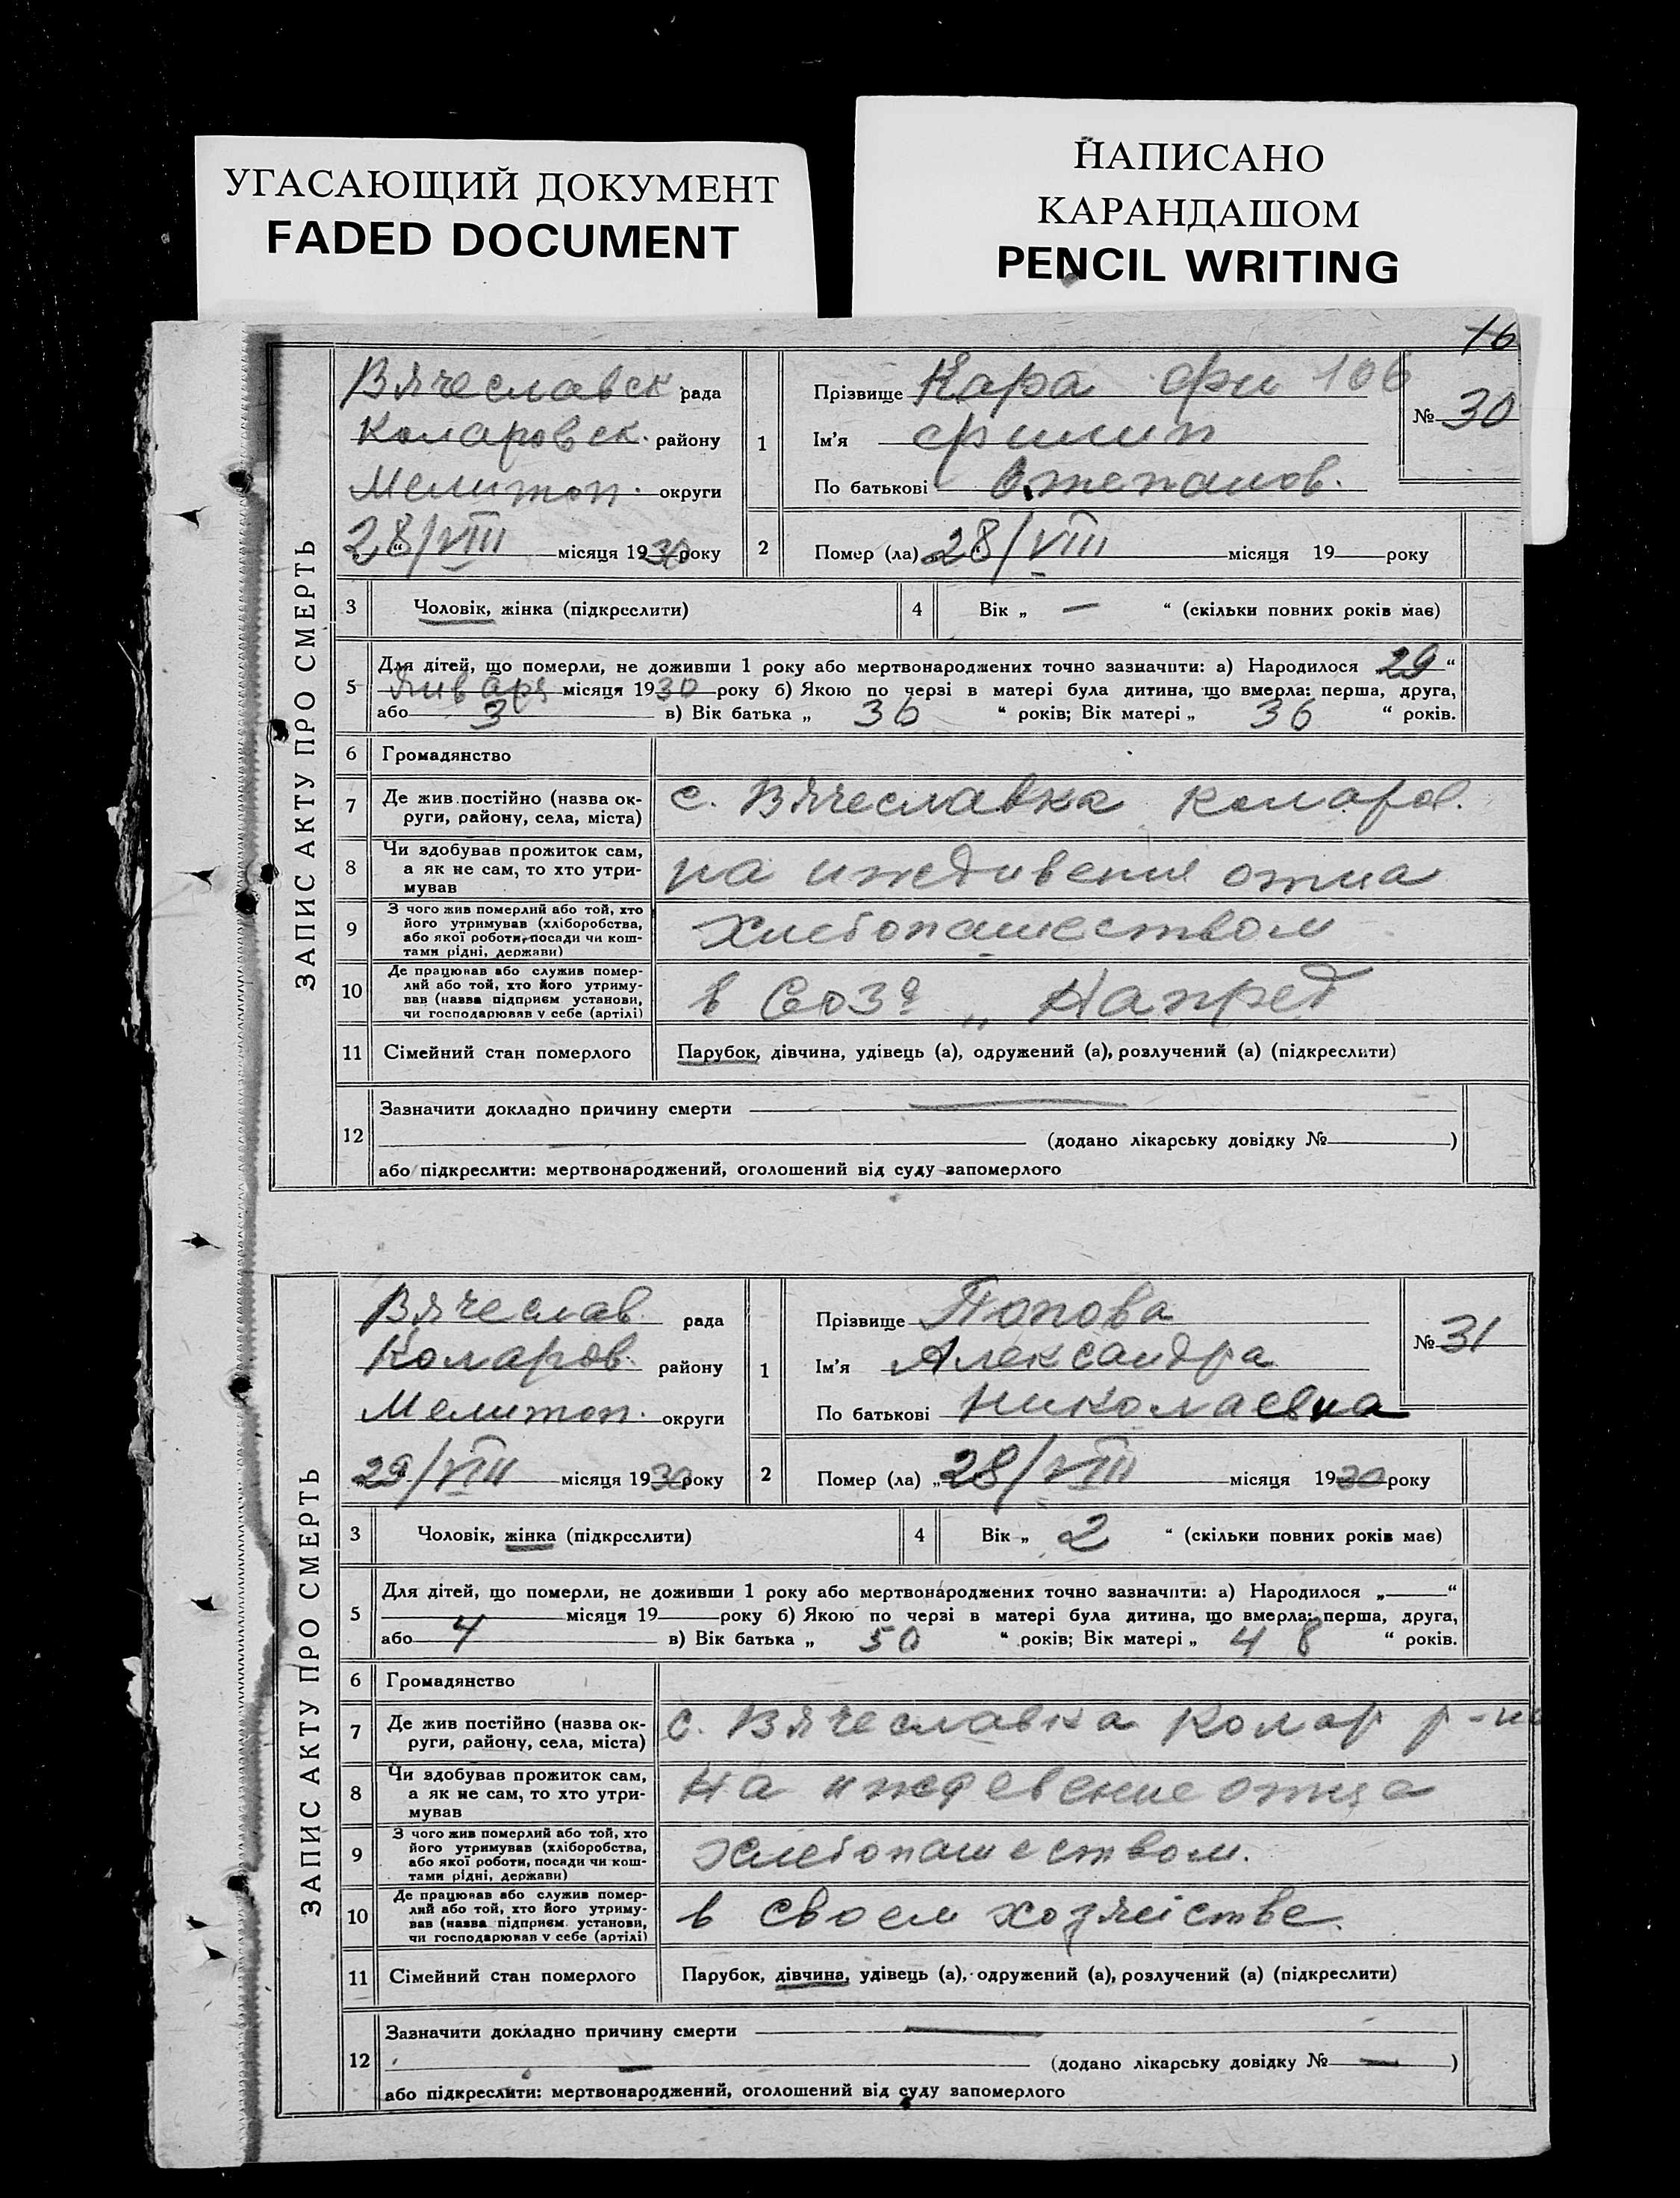 УГАСАЮЩИЙ ДОКУМЕНТ
FADED DOCUMENT
НАПИСАНО
КАРАНДАШОМ
PENCIL WRITING
16
ЗАПИС АКТУ ПРО СМЕРТЬ
Вячеславск рада
Коларовск. району
Мелитоп. округи
„28/VIII місяця 1930 року
1 Прізвище Кара
Ім'я Филип
По батькові Степанов.
№ 30
2 Помер (ла) 28/VIII місяця 19 року
3 Чоловік, жінка (підкреслити)
4 Вік „ — “ (скільки повних років має)
5 Для дітей, що померли, не доживши 1 року або мертвонароджених точно зазначити: а) Народилося 29 “
Января місяця 1930 року б) Якою по черзі в матері була дитина, що вмерла: перша, друга,
або 3 в) Вік батька „ 36 “ років; Вік матері „ 36 “ років.
6 Громадянство
7 Де жив постійно (назва ок-
руги, району, села, міста)
с. Вячеславка Колоров.
8 Чи здобував прожиток сам,
а як не сам, то хто утри-
мував
на иждивении отца
9 З чого жив померлий або той, хто
його утримував (хліборобства,
або якої роботи, посади чи кош-
тами рідні, держави)
Хлебопашеством
10 Де працював або служив помер-
лий або той, хто його утриму-
вав (назва підприєм установи,
чи господарював у себе (артілі)
в Созе „ Напред
11 Сімейний стан померлого
Парубок, дівчина, удівець (а), одружений (а), розлучений (а) (підкреслити)
12 Зазначити докладно причину смерти —
— (додано лікарську довідку № )
або підкреслити: мертвонароджений, оголошений від суду запомерлого
ЗАПИС АКТУ ПРО СМЕРТЬ
Вячеслав. рада
Коларов. району
Мелитоп. округи
„29/VIII місяця 1930 року
1 Прізвище Попова
Ім'я Александра
По батькові Николаевна
№ 31
2 Помер (ла) „28/VIII місяця 1930 року
3 Чоловік, жінка (підкреслити)
4 Вік „ 2 “ (скільки повних років має)
5 Для дітей, що померли, не доживши 1 року або мертвонароджених точно зазначити: а) Народилося „ “
місяця 19 року б) Якою по черзі в матері була дитина, що вмерла: перша, друга,
або 4 в) Вік батька „ 50 “ років; Вік матері „ 48 “ років.
6 Громадянство
7 Де жив постійно (назва ок-
руги, району, села, міста)
с. Вячеславка Колар р-на
8 Чи здобував прожиток сам,
а як не сам, то хто утри-
мував
На иждевение отца
9 З чого жив померлий або той, хто
його утримував (хліборобства,
або якої роботи, посади чи кош-
тами рідні, держави)
Хлебопашеством.
10 Де працював або служив помер-
лий або той, хто його утриму-
вав (назва підприєм. установи,
чи господарював у себе (артілі)
в своем хозяйстве.
11 Сімейний стан померлого
Парубок, дівчина, удівець (а), одружений (а), розлучений (а) (підкреслити)
12 Зазначити докладно причину смерти —
— (додано лікарську довідку № — )
або підкреслити: мертвонароджений, оголошений від суду запомерлого